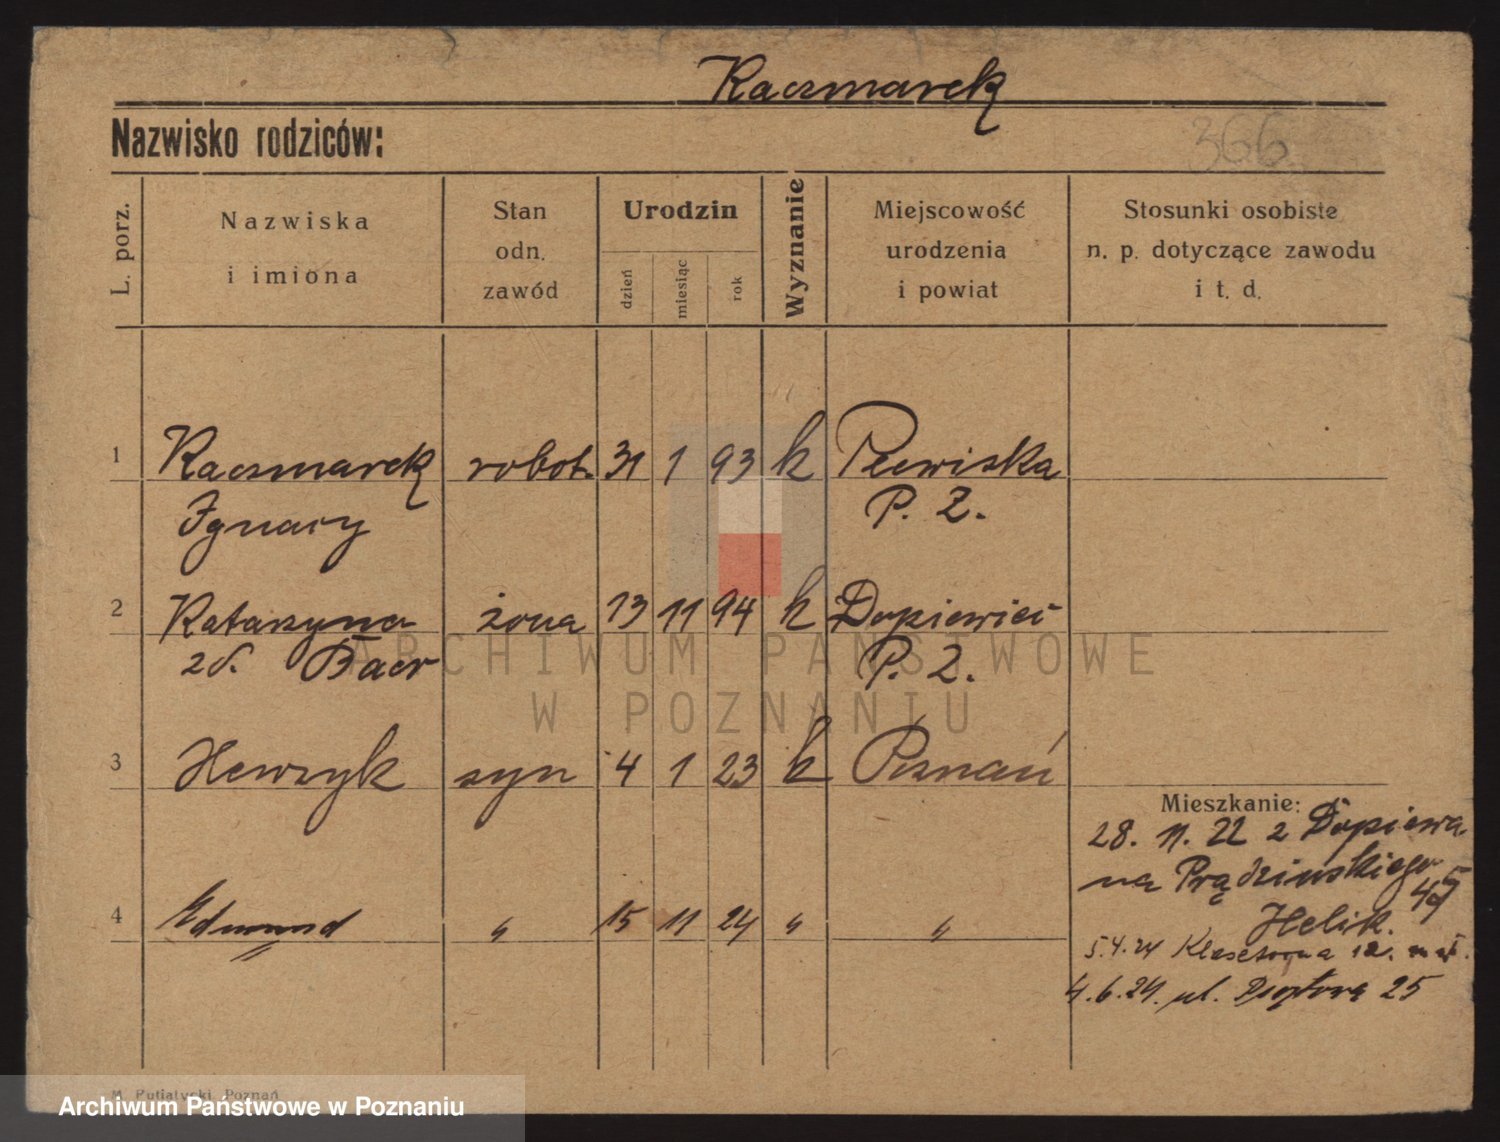 Kaczmarek
Nazwisko rodziców:
366
L. porz.
Nazwiska
i imiona
Stan
odn.
zawód
Urodzin
dzień
miesiąc
rok
Wyznanie
Miejscowość
urodzenia
i powiat
Stosunki osobiste
n. p. dotyczące zawodu
i t. d.
1 Kaczmarek robot. 31 1 93 k Plewiska
Ignacy P. Z.
2 Katarzyna żona 13 11 94 k Dopiewiec
zd. P. Z.
3 Henryk syn 4 1 23 k Poznań
Mieszkanie:
28. 11. 22 z Dopiewa
na Prądzińskiego
45
Helik.
4 Edmund " 15 11 24 " "
5.4.24 Klasztorna 12.
4.6.24. ul. 25
ARCHIWUM PAŃSTWOWE
W POZNANIU
M. Putiatycki, Poznań
Archiwum Państwowe w Poznaniu